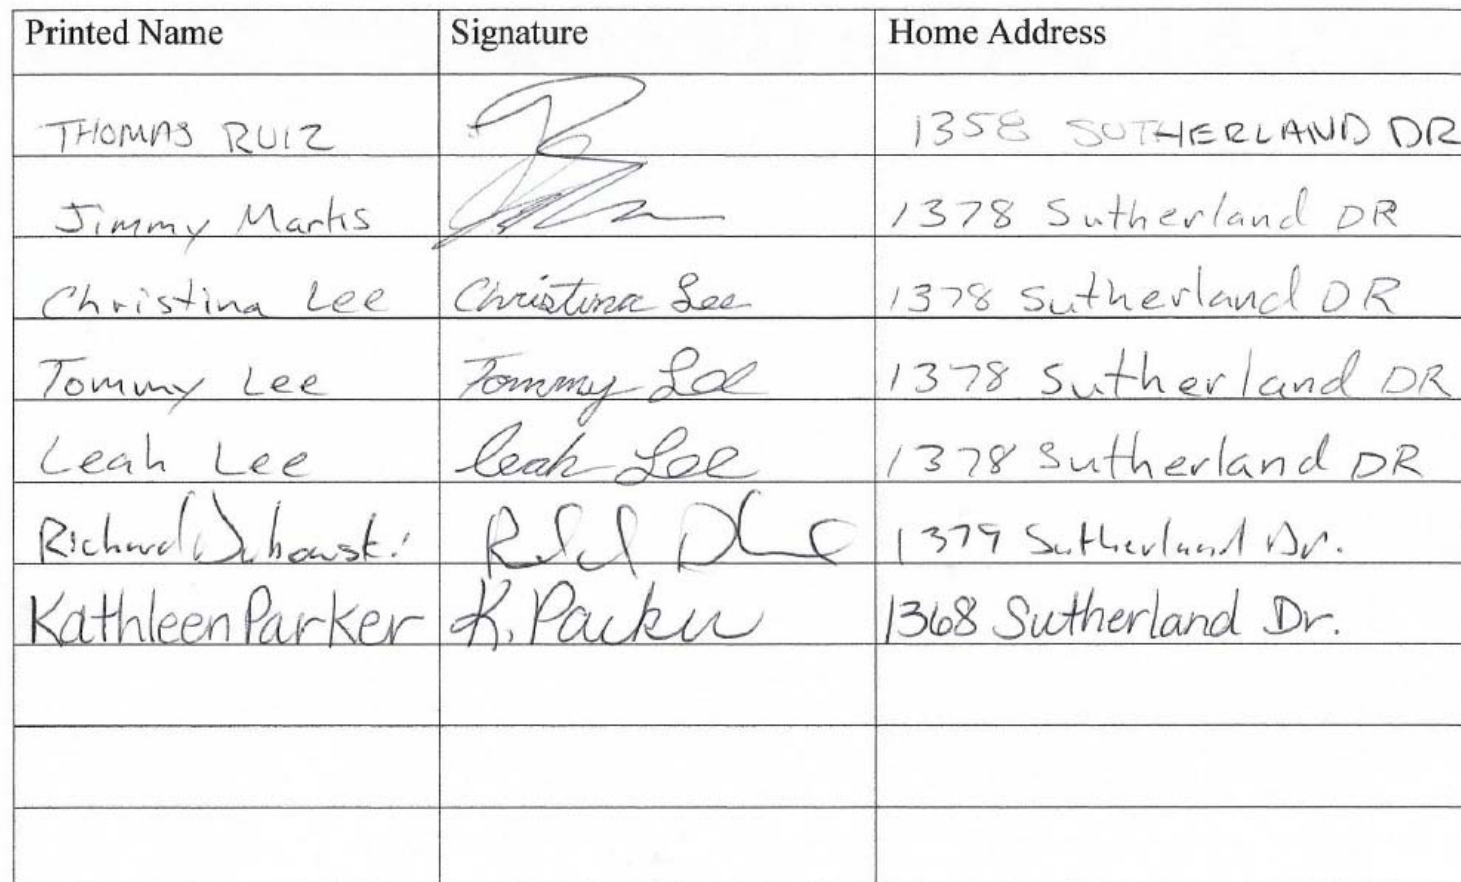 Printed Name Signature Home Address
THOMAS RUIZ 1358 SUTHERLAND DR
Jimmy Marks 1378 Sutherland DR
Christina Lee Christina Lee 1378 Sutherland DR
Tommy Lee Tommy Lee 1378 Sutherland DR
Leah Lee Leah Lee 1378 Sutherland DR
Richard 1379 Sutherland Dr.
Kathleen Parker K. Parker 1368 Sutherland Dr.